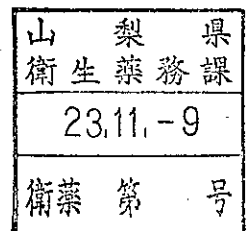 山梨県
衛生薬務課
23.11.-9
衛薬 第 号